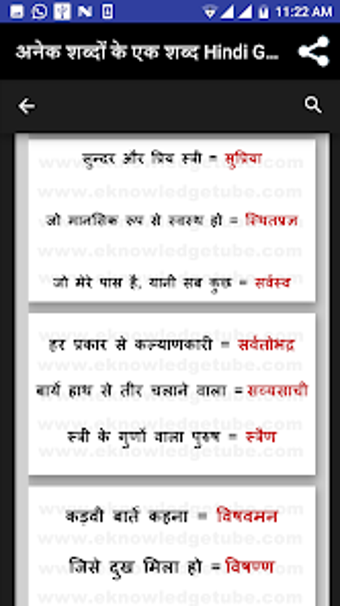 11:22 AM
अनेक शब्दों के एक शब्द Hindi G...
सुन्दर और प्रिय स्त्री = सुप्रिया
www.eknowledgetube.com
जो मानसिक रूप से स्वस्थ हो = स्थितप्रज्ञ
www.eknowledgetube.com
जो मेरे पास है, यानी सब कुछ = सर्वस्व
हर प्रकार से कल्याणकारी = सर्वतोभद्र
www.eknowledgetube.com
बायें हाथ से तीर चलाने वाला = सव्यसाची
www.eknowledgetube.com
स्त्री के गुणों वाला पुरुष = स्त्रैण
www.eknowledgetube.com
कड़वी बातें कहना = विषवमन
www.eknowledgetube.com
जिसे दुख मिला हो = विषण्ण
www.eknowledgetube.com